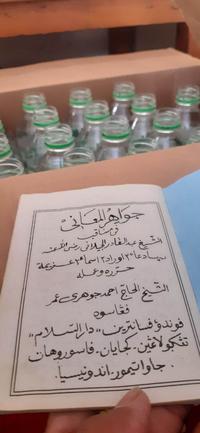 جواهر المعاني
في مناقب
الشيخ عبد القادر الجيلاني رضي الله عنه
حرره وعمله
الشيخ الحاج احمد جوهري عمر
فڠاسوه
فوندوق فسانترين "دار السلام"
تڠكولاڠين - كجايان - فاسوروهان
جاوا تيمور - اندونيسيا.